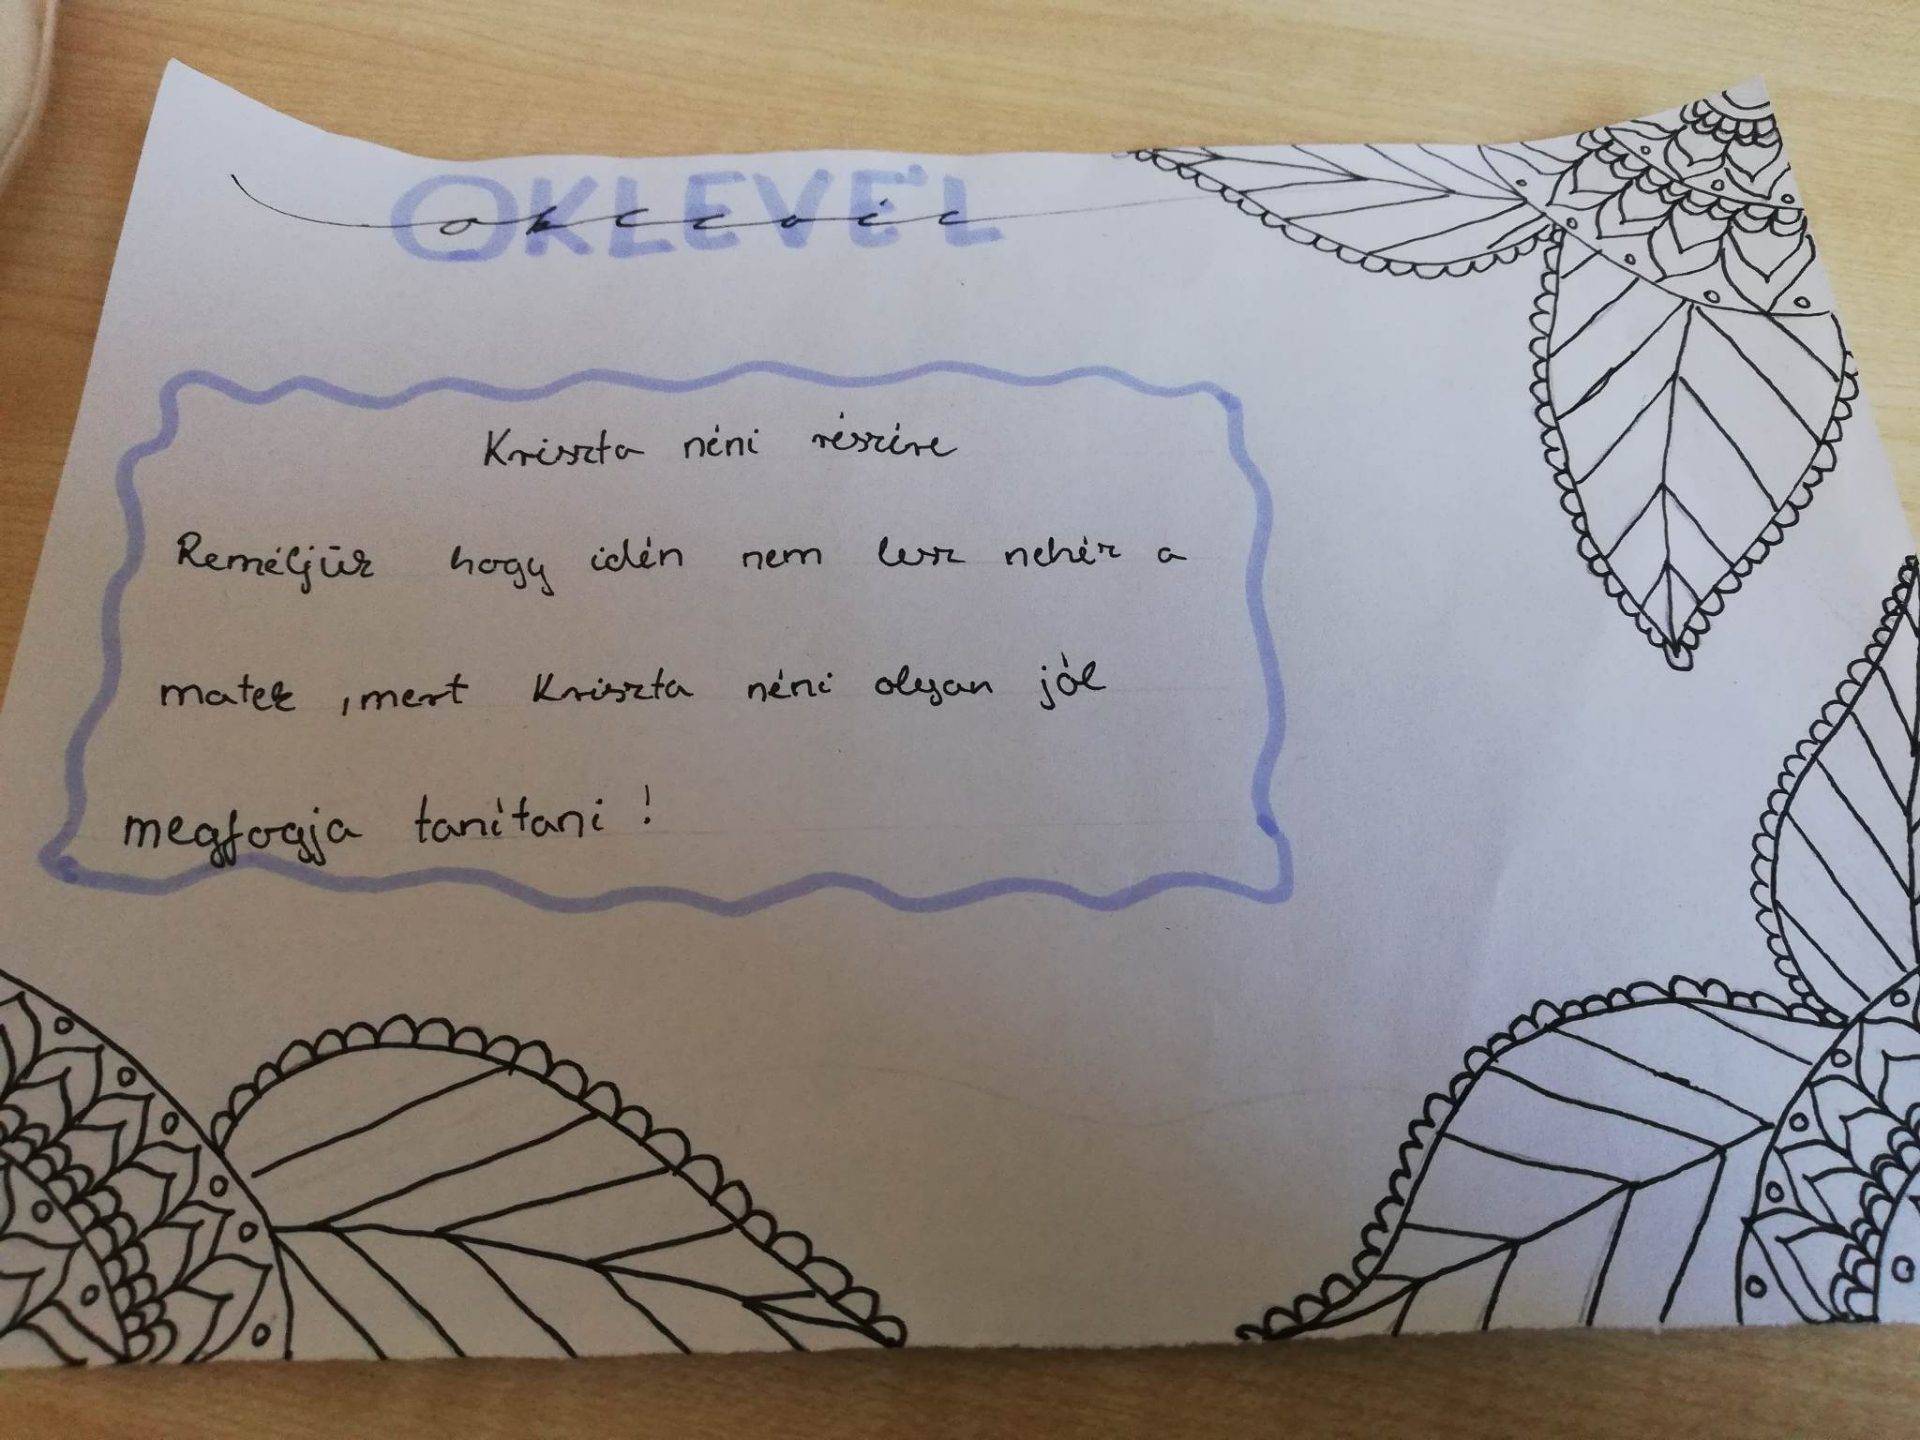 OKLEVÉL
oklevél
Kriszta néni részére
Reméljük hogy idén nem lesz nehéz a
matek ,mert Kriszta néni olyan jól
megfogja tanítani !